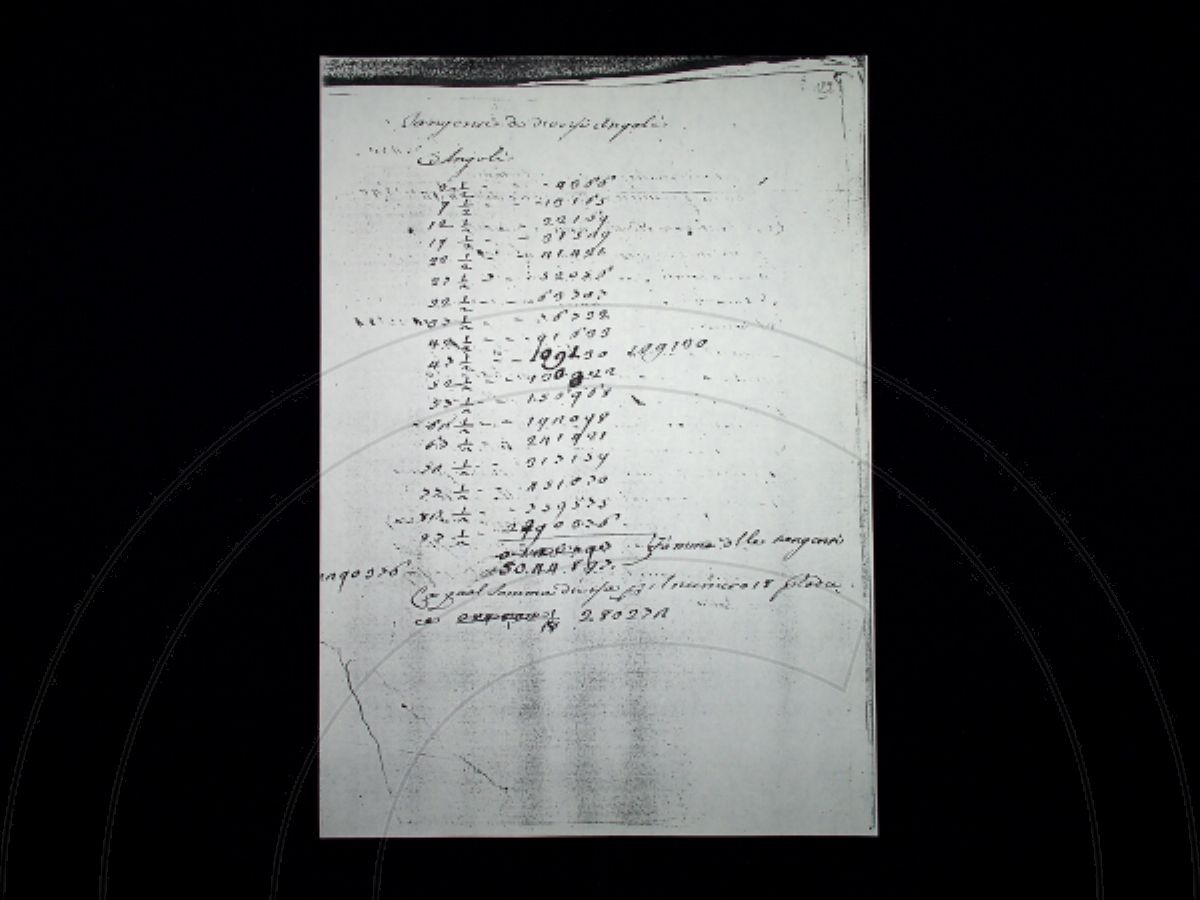 Tangenti di diversi Angoli
Angoli
2 1/2 - - 4366
7 1/2 - - 13165
12 1/2 - - 22169
17 1/2 - - 31529
22 1/2 - - 41421
27 1/2 - - 52056
32 1/2 - - 63707
37 1/2 - - 76732
42 1/2 - - 91633
47 1/2 - - 109130 109130
52 1/2 - - 130322
57 1/2 - - 156968
62 1/2 - - 192098
67 1/2 - - 241421
72 1/2 - - 317159
77 1/2 - - 451070
82 1/2 - - 759575
87 1/2 - - 2290376
5044897. Somma delle tangenti
2290376
La qual Somma divisa per il numero 18
è 280272